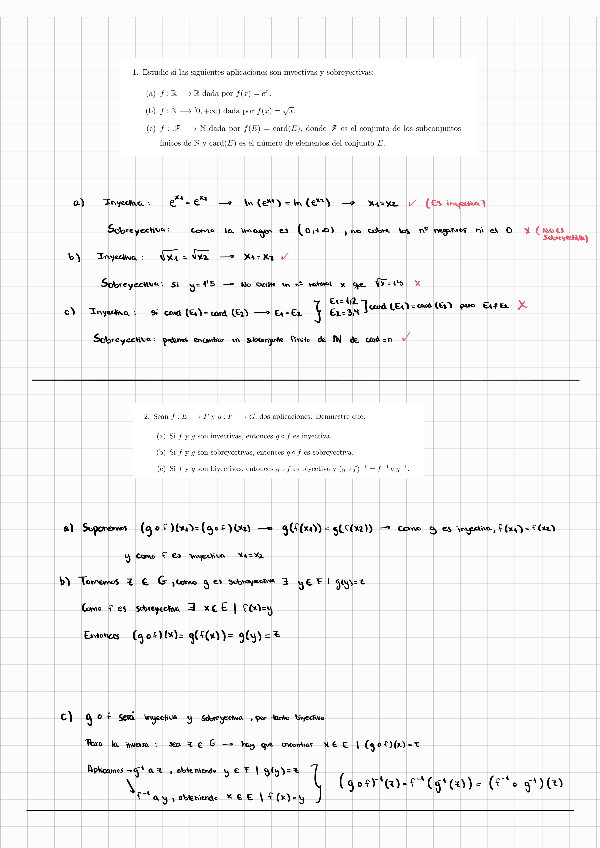 1. Estudie si las siguientes aplicaciones son inyectivas y sobreyectivas:
(a) f : ℝ → ℝ dada por f(x) = eˣ.
(b) f : ℕ → [0, +∞) dada por f(x) = √x.
(c) f : ℱ → ℕ dada por f(E) = card(E), donde ℱ es el conjunto de los subconjuntos
finitos de ℕ y card(E) es el número de elementos del conjunto E.
a) Inyectiva: e^x₁ = e^x₂ → ln(e^x₁) = ln(e^x₂) → x₁=x₂ ✓ (Es inyectiva)
Sobreyectiva: como la imagen es (0,+∞), no cubre los nº negativos ni el 0 X (No es sobreyectiva)
b) Inyectiva: √x₁ = √x₂ → x₁=x₂ ✓
Sobreyectiva: si y=1'5 → No existe un nº natural x que √x=1'5 X
c) Inyectiva: si card(E₁)=card(E₂) → E₁=E₂ } E₁=1,2 E₂=3,4 ] card(E₁)=card(E₂) pero E₁≠E₂ X
Sobreyectiva: podemos encontrar un subconjunto finito de ℕ de card=n ✓
2. Sean f : E → F y g : F → G, dos aplicaciones. Demuestre que:
(a) Si f y g son inyectivas, entonces g∘f es inyectiva.
(b) Si f y g son sobreyectivas, entonces g∘f es sobreyectiva.
(c) Si f y g son biyectivas, entonces g∘f es biyectiva y (g∘f)⁻¹ = f⁻¹∘g⁻¹.
a) Suponemos (g∘f)(x₁)=(g∘f)(x₂) → g(f(x₁))=g(f(x₂)) → como g es inyectiva, f(x₁)=f(x₂)
y como f es inyectiva x₁=x₂
b) Tomemos z ∈ G, como g es sobreyectiva ∃ y∈F | g(y)=z
Como f es sobreyectiva ∃ x∈E | f(x)=y
Entonces (g∘f)(x)= g(f(x))= g(y)=z
c) g∘f será inyectiva y sobreyectiva, por tanto biyectiva
Para la inversa: sea z ∈ G → hay que encontrar x∈E | (g∘f)(x)=z
Aplicamos → g⁻¹ a z, obteniendo y∈F | g(y)=z
f⁻¹ a y, obteniendo x∈E | f(x)=y } (g∘f)⁻¹(z)=f⁻¹(g⁻¹(z)) = (f⁻¹∘g⁻¹)(z)